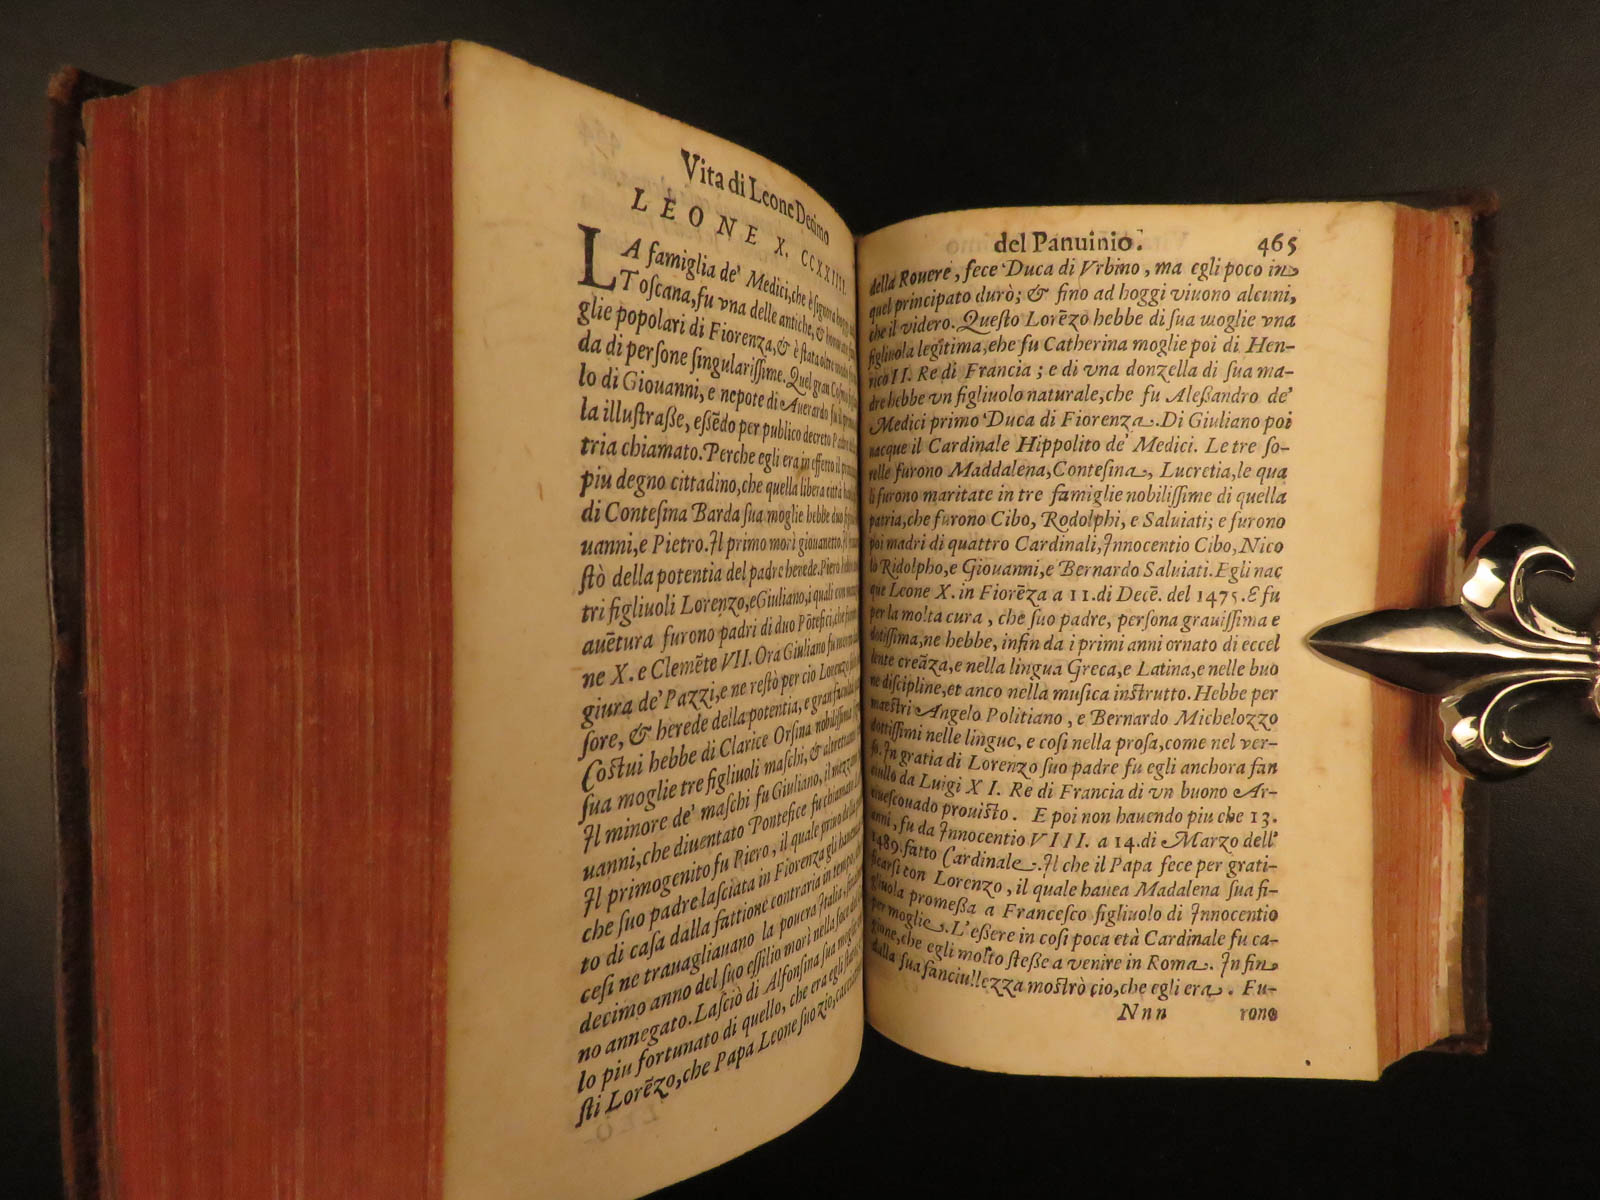 Vita di Leone Decimo
LEONE X. CCXXIIII.
LA famiglia de' Medici, che è signora hoggi
Toscana, fu vna delle antiche, &
glie popolari di Fiorenza, & è stata oltre modo
da di persone singularissime. Quel gran Cosmo
lo di Giouanni, e nepote di Auerardo fu il
la illustraße, essẽdo per publico decreto Padre
tria chiamato. Perche egli era in effetto il
piu degno cittadino, che quella libera città
di Contesina Barda sua moglie hebbe duo
uanni, e Pietro. Il primo morì giouanetto.
stò della potentia del padre herede. Piero
tri figliuoli Lorenzo, e Giuliano, i quali con
auẽtura furono padri di duo Põtefici, che
ne X. e Clemẽte VII. Ora Giuliano fu
giura de' Pazzi, e ne restò per ciò Lorenzo
sore, & herede della potentia, e gran facultà
Costui hebbe di Clarice Orsina nobilissima
sua moglie tre figliuoli maschi, & altrettante
Il minore de' maschi fu Giuliano, il mezzano
uanni, che diuentato Pontefice fu chiamato
Il primogenito fu Piero, il quale primo della
che suo padre lasciata in Fiorenza gli haueua
to di casa dalla fattione contraria in tempo, che
cesi ne trauagliauano la pouera Italia,
decimo anno del suo essilio morì nella foce del
no annegato. Lasciò di Alfonsina sua moglie
lo piu fortunato di quello, che era egli stato,
sti Lorẽzo, che Papa Leone suo zio, cacciatone
del Panuinio. 465
della Rouere, fece Duca di Vrbino, ma egli poco in
quel principato durò; & fino ad hoggi viuono alcuni,
che il videro. Questo Lorẽzo hebbe di sua moglie vna
figliuola legitima, che fu Catherina moglie poi di Hen-
rico II. Re di Francia; e di vna donzella di sua ma-
dre hebbe vn figliuolo naturale, che fu Aleßandro de'
Medici primo Duca di Fiorenza. Di Giuliano poi
nacque il Cardinale Hippolito de' Medici. Le tre so-
relle furono Maddalena, Contesina, Lucretia, le qua
li furono maritate in tre famiglie nobilissime di quella
patria, che furono Cibo, Rodolphi, e Saluiati; e furono
poi madri di quattro Cardinali, Innocentio Cibo, Nico
lò Ridolpho, e Giouanni, e Bernardo Saluiati. Egli nac
que Leone X. in Fiorẽza a 11. di Decẽ. del 1475. E fu
per la molta cura, che suo padre, persona grauissima e
dottissima, ne hebbe, infin da i primi anni ornato di eccel
lente creãza, e nella lingua Greca, e Latina, e nelle buo
ne discipline, et anco nella musica instrutto. Hebbe per
maestri Angelo Politiano, e Bernardo Michelozzo
dottissimi nelle lingue, e cosi nella prosa, come nel ver-
so. In gratia di Lorenzo suo padre fu egli anchora fan
ciullo da Luigi XI. Re di Francia di vn buono Ar-
ciuescouado prouisto. E poi non hauendo piu che 13.
anni, fu da Innocentio VIII. a 14. di Marzo dell'
1489. fatto Cardinale. Il che il Papa fece per grati-
ficarsi con Lorenzo, il quale hauea Madalena sua fi-
gliuola promeßa a Francesco figliuolo di Innocentio
per moglie. L'eßere in cosi poca età Cardinale fu ca-
gione, che egli molto steße a venire in Roma. In fin
dalla sua fanciullezza mostrò ciò, che egli era. Fu-
Nnn rono